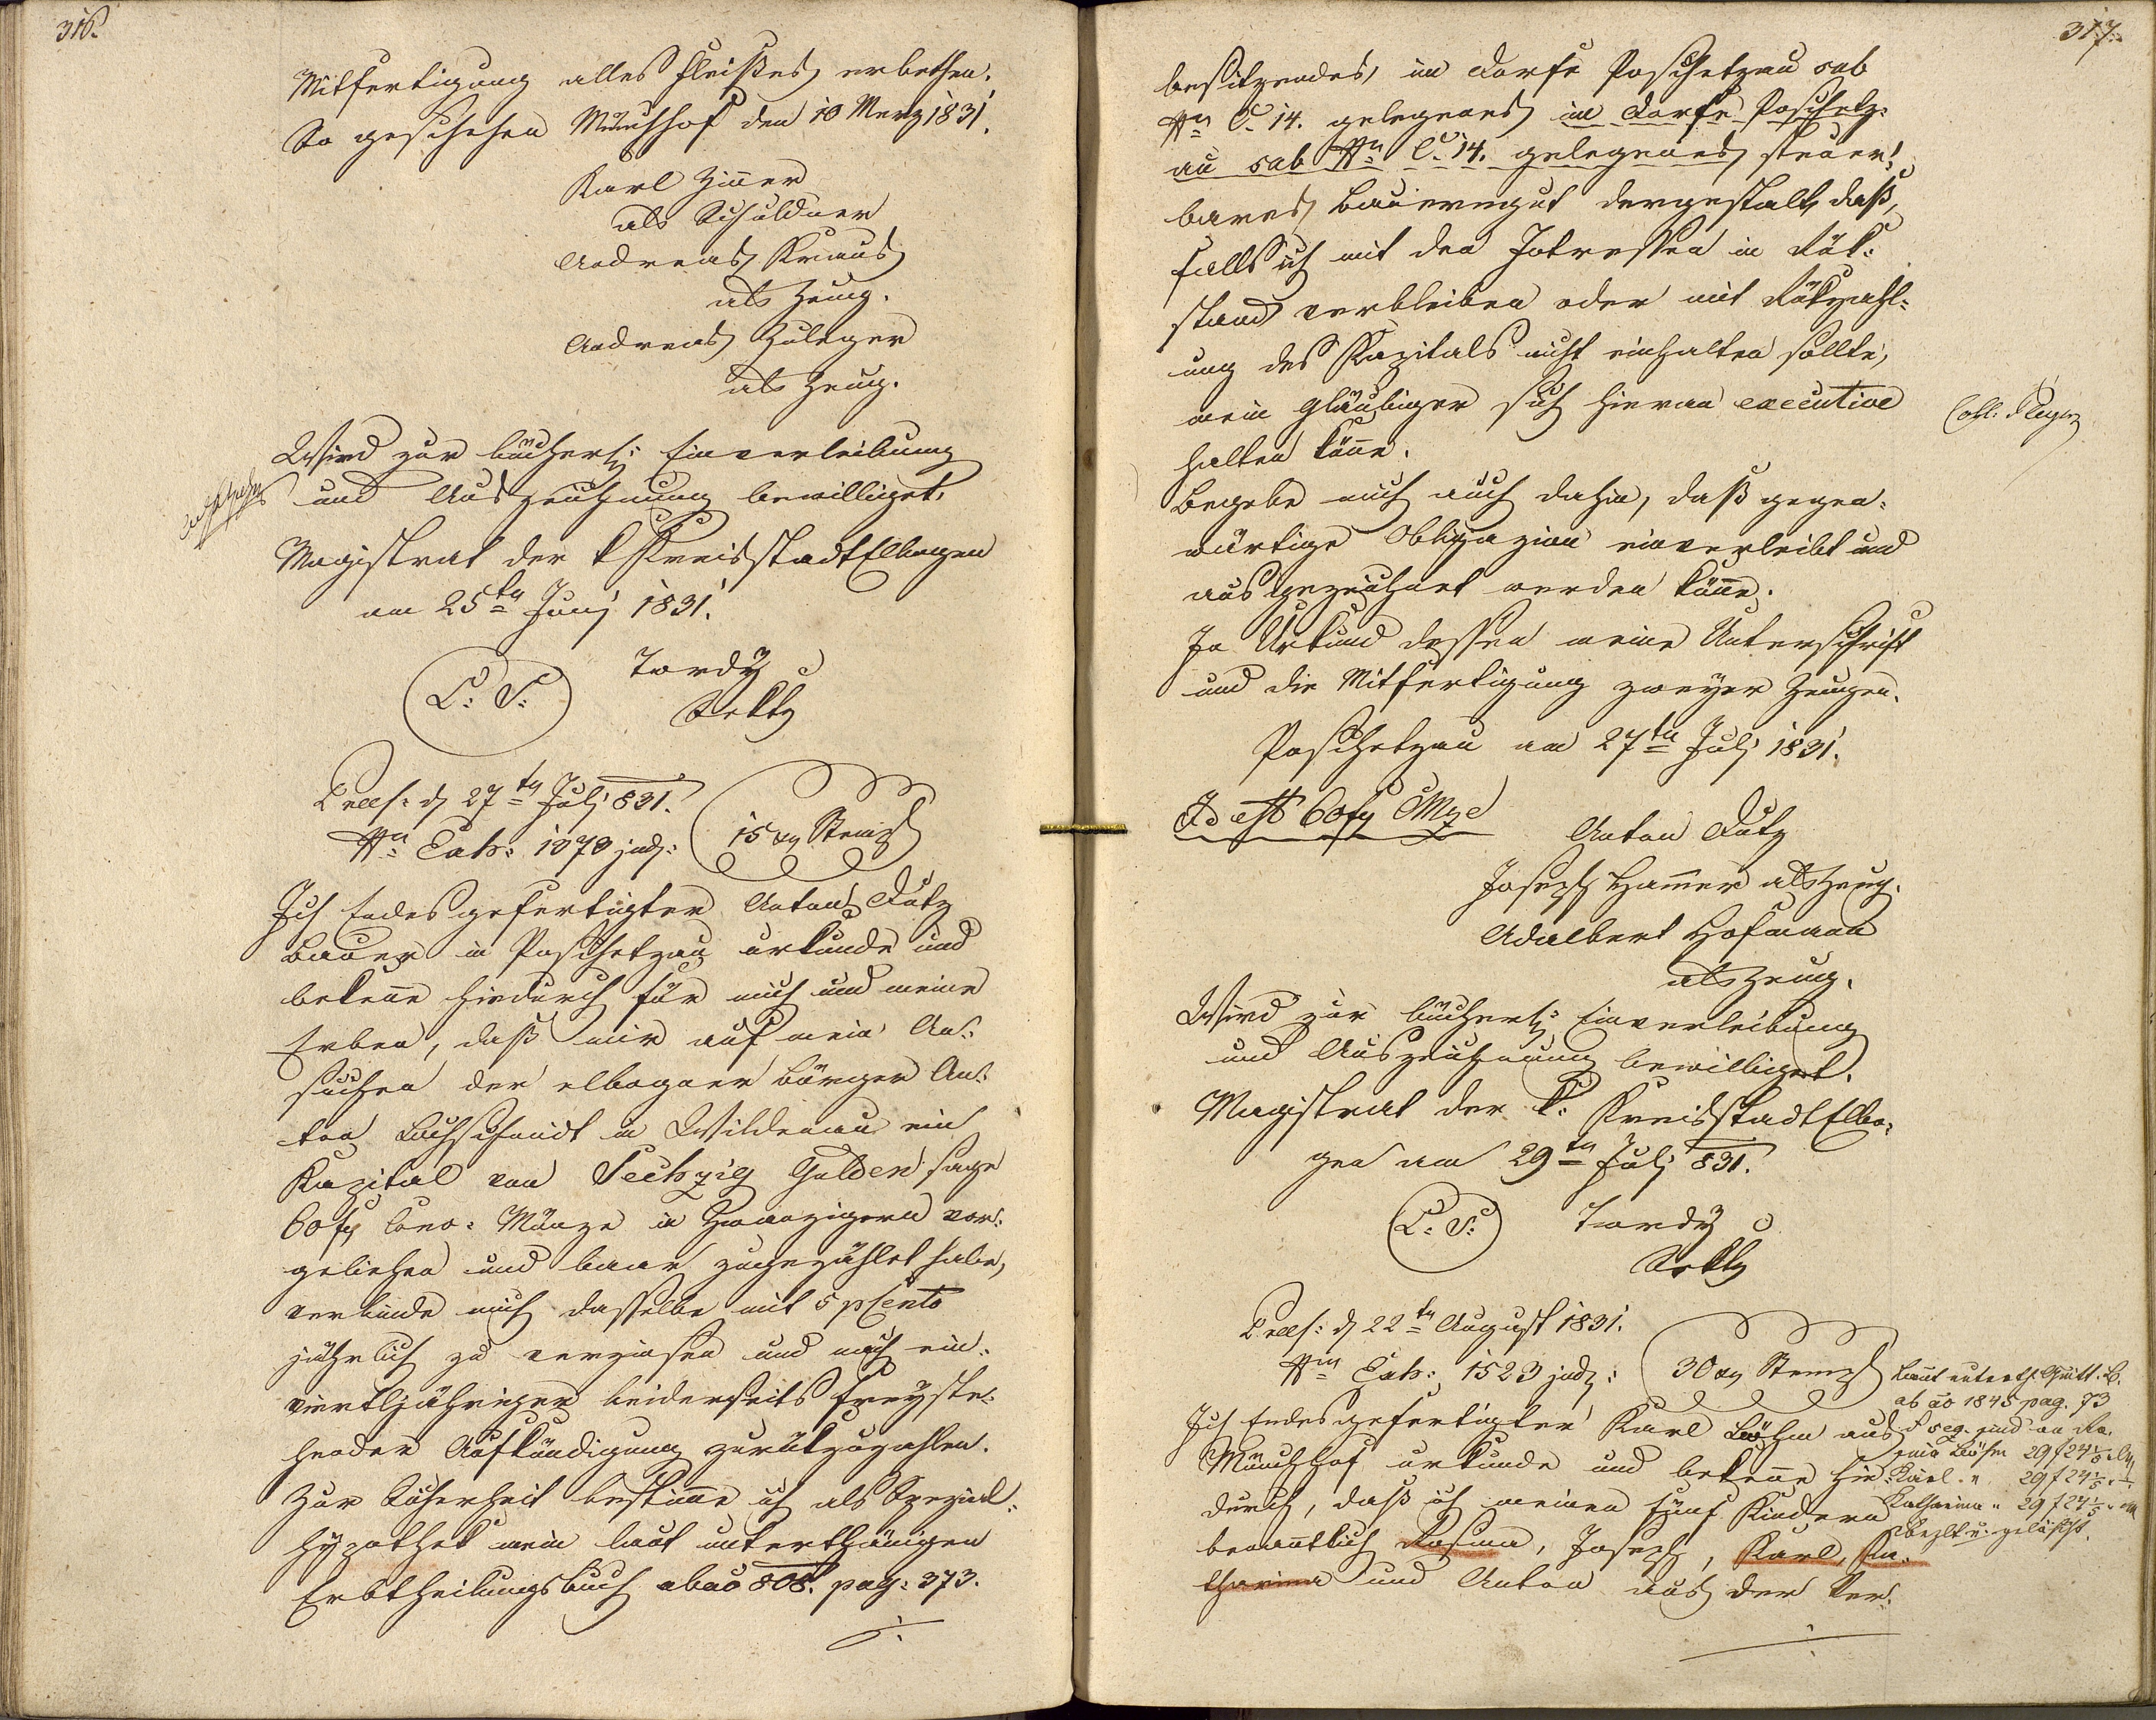 316.
Mitfertigung alles Fleißes erbethen.
So geschehen Münchhof den 10 Merz 1831.
Karl Zinner
als Schuldner
Andreas Kraus
als Zeug.
Andreas Zuleger
als Zeug.
Wird zur bücherl: Einverleibung
und Auszeichnung bewilliget.
Magistrat der k Kreisstadt Elbogen
am 25ten Juni 1831.
L: S: Tordy
Sekty
Præs: d 27ten Juli 831.
Nro Exh: 1370 jud: 15 xr Stempl
Ich Endesgefertigter Anton Dutz
Bauer in Poschetzau urkunde und
bekenne hiedurch für mich und meine
Erben, daß mir auf mein An:
suchen der elbogner Bürger An:
ton Bachschmidt in Wildenau ein
Kapital von Sechzig Gulden sage
60 fr Conv: Münze in Zwanzigern vor:
geliehen und baar zugezählet habe,
verbinde mich dasselbe mit 5 pCento
jährlich zu verzinsen und nach ein:
viertljähriger beiderseits freyste:
hender Aufkündigung zurükzuzahlen.
Zur Sicherheit bestimme ich als Spezial:
hypothek mein laut unterthänigen
Erbtheilungsbuch ab ao 808. pag: 373.
317.
besitzendes, im Dorfe Poschetzau sub
Nro C. 14. gelegenes im Dorfe Poschetz:
au sub Nro C. 14. gelegenes steuer:
bares Bauerngut dergestalt, daß,
falls ich mit den Interessen in Rük:
stand verbleiben oder mit Rükzahl:
ung des Kapitals nicht einhalten sollte,
mein Gläubiger sich hieran executive
halten könne.
Begebe mich auch dahin, daß gegen:
wärtige Obligazion einverleibt und
ausgezeichnet werden könne.
In Urkund dessen meine Unterschrift
und die Mitfertigung zweyer Zeugen.
Poschetzau am 27ten Juli 1831.
Id est 60 fr CMze
Anton Dutz
Joseph Hammer als Zeug.
Adalbert Hofmann
als Zeug.
Wird zur bücherl: Einverleibung
und Auszeichnung bewilliget.
Magistrat der k: Kreisstadt Elbo:
gen am 29ten Juli 831.
L: S: Tordy
Sekty
Præs: d 22ten August 1831.
Nro Exh: 1523 jud: 30 xr Stempl
Ich Endesgefertigter Karl Böhm aus
Münchhof urkunde und bekenne hie:
durch, daß ich meinen fünf Kindern
benanntlich Rosina, Joseph, Karl, Ka:
tharina und Anton aus der Ver:
Laut unterth. Quitt. B.
ab ao 1845 pag. 73
et seq. sind an Ro:
sina Böhm 29 f 24 1/5
Karl " 29 f 24 1/5
Katharina " 29 f 24 1/5
bezlt u. gelöscht.